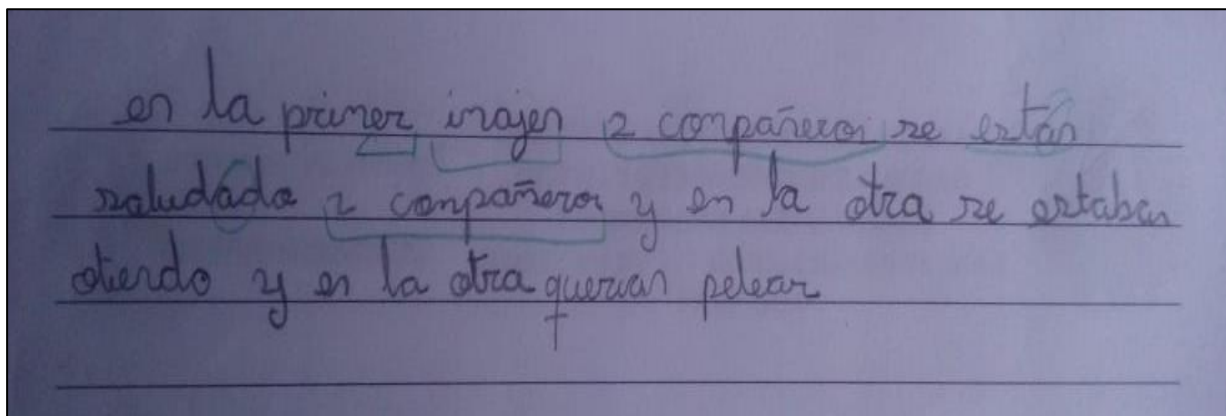 en la primer inajen 2 conpañeros se están
saludado 2 conpañeros y en la otra se estaban
otiendo y en la otra querian pelear